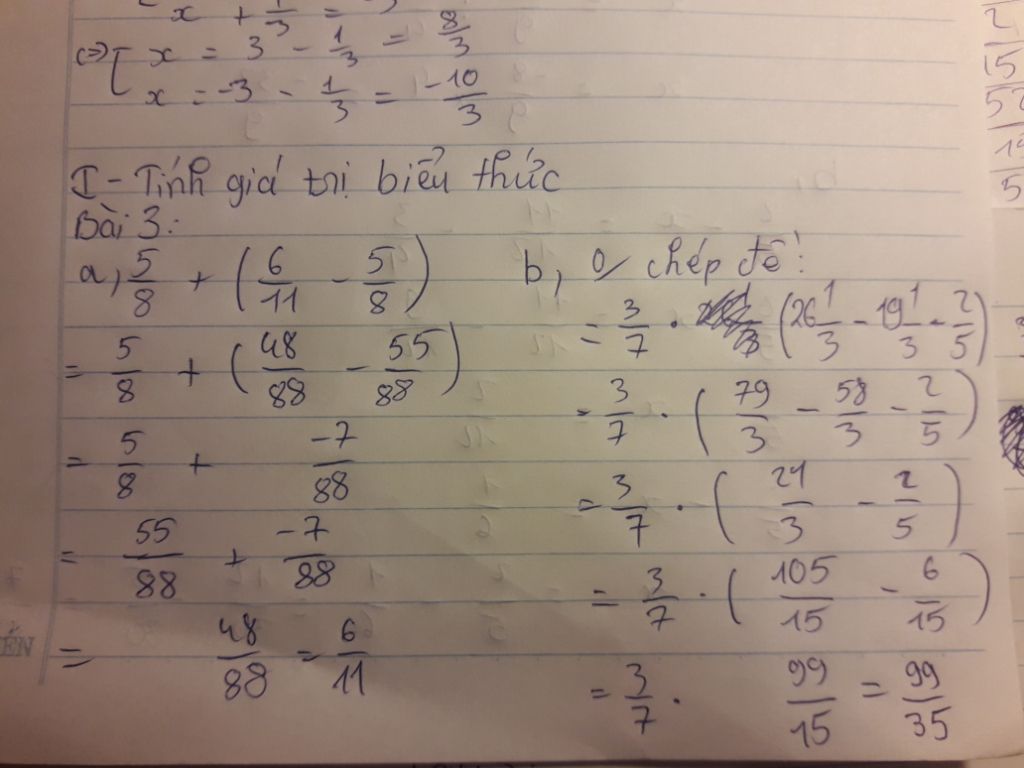 x + 1/3 = -3
⇔ [ x = 3 - 1/3 = 8/3
x = -3 - 1/3 = -10/3
I - Tính giá trị biểu thức
Bài 3:
a, 5/8 + (6/11 - 5/8)
= 5/8 + (48/88 - 55/88)
= 5/8 + -7/88
= 55/88 + -7/88
= 48/88 = 6/11
b, 0/ chép đề:
= 3/7 . (26 1/3 - 19 1/3 - 2/5)
= 3/7 . (79/3 - 58/3 - 2/5)
= 3/7 . (21/3 - 2/5)
= 3/7 . (105/15 - 6/15)
= 3/7 . 99/15 = 99/35